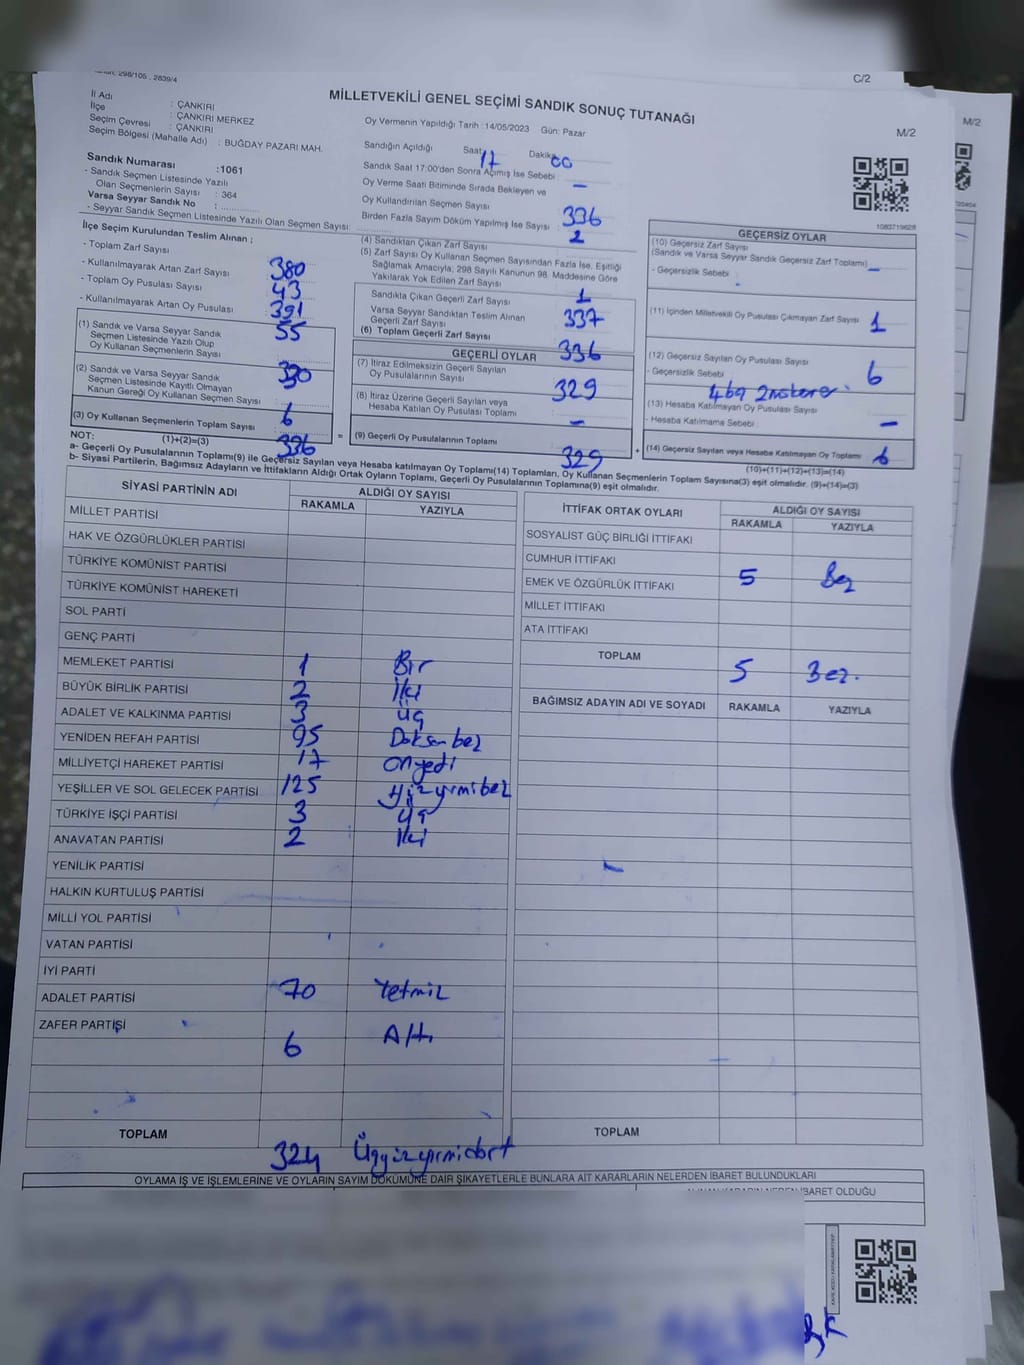 Kanun: 298/105 , 2839/4
C/2
MİLLETVEKİLİ GENEL SEÇİMİ SANDIK SONUÇ TUTANAĞI
M/2
M/2
İl Adı : ÇANKIRI
İlçe : ÇANKIRI MERKEZ
Seçim Çevresi : ÇANKIRI
Seçim Bölgesi (Mahalle Adı) : BUĞDAY PAZARI MAH.
Oy Vermenin Yapıldığı Tarih : 14/05/2023 Gün: Pazar
Sandığın Açıldığı Saat: 17 Dakika: 00
Sandık Saat 17:00'den Sonra Açımış İse Sebebi : —
Oy Verme Saati Bitiminde Sırada Bekleyen ve
Oy Kullandırılan Seçmen Sayısı : 336
Birden Fazla Sayım Döküm Yapılmış İse Sayısı : 2
Sandık Numarası :1061
- Sandık Seçmen Listesinde Yazılı
Olan Seçmenlerin Sayısı : 364
Varsa Seyyar Sandık No :
- Seyyar Sandık Seçmen Listesinde Yazılı Olan Seçmen Sayısı:
1083719628
İlçe Seçim Kurulundan Teslim Alınan ;
- Toplam Zarf Sayısı : 380
- Kullanılmayarak Artan Zarf Sayısı : 43
- Toplam Oy Pusulası Sayısı : 391
- Kullanılmayarak Artan Oy Pusulası : 55
(1) Sandık ve Varsa Seyyar Sandık
Seçmen Listesinde Yazılı Olup
Oy Kullanan Seçmenlerin Sayısı : 330
(2) Sandık ve Varsa Seyyar Sandık
Seçmen Listesinde Kayıtlı Olmayan
Kanun Gereği Oy Kullanan Seçmen Sayısı : 6
(3) Oy Kullanan Seçmenlerin Toplam Sayısı : 336
(1)+(2)=(3)
(4) Sandıktan Çıkan Zarf Sayısı
(5) Zarf Sayısı Oy Kullanan Seçmen Sayısından Fazla İse, Eşitliği
Sağlamak Amacıyla, 298 Sayılı Kanunun 98. Maddesine Göre
Yakılarak Yok Edilen Zarf Sayısı : 1
Sandıkta Çıkan Geçerli Zarf Sayısı : 337
Varsa Seyyar Sandıktan Teslim Alınan
Geçerli Zarf Sayısı
(6) Toplam Geçerli Zarf Sayısı : 336
GEÇERLİ OYLAR
(7) İtiraz Edilmeksizin Geçerli Sayılan
Oy Pusulalarının Sayısı : 329
(8) İtiraz Üzerine Geçerli Sayılan veya
Hesaba Katılan Oy Pusulası Toplamı : —
= (9) Geçerli Oy Pusulalarının Toplamı : 329 +
GEÇERSİZ OYLAR
(10) Geçersiz Zarf Sayısı
(Sandık ve Varsa Seyyar Sandık Geçersiz Zarf Toplamı) : —
- Geçersizlik Sebebi :
(11) İçinden Milletvekili Oy Pusulası Çıkmayan Zarf Sayısı : 1
(12) Geçersiz Sayılan Oy Pusulası Sayısı : 6
- Geçersizlik Sebebi :
(13) Hesaba Katılmayan Oy Pusulası Sayısı
- Hesaba Katılmama Sebebi : —
(14) Geçersiz Sayılan veya Hesaba Katılmayan Oy Toplamı : 6
(10)+(11)+(12)+(13)=(14)
NOT:
a- Geçerli Oy Pusulalarının Toplamı(9) ile Geçersiz Sayılan veya Hesaba katılmayan Oy Toplamı(14) Toplamları, Oy Kullanan Seçmenlerin Toplam Sayısına(3) eşit olmalıdır. (9)+(14)=(3)
b- Siyasi Partilerin, Bağımsız Adayların ve İttifakların Aldığı Ortak Oyların Toplamı, Geçerli Oy Pusulalarının Toplamına(9) eşit olmalıdır.
SİYASİ PARTİNİN ADI ALDIĞI OY SAYISI
RAKAMLA YAZIYLA
MİLLET PARTİSİ
HAK VE ÖZGÜRLÜKLER PARTİSİ
TÜRKİYE KOMÜNİST PARTİSİ
TÜRKİYE KOMÜNİST HAREKETİ
SOL PARTİ
GENÇ PARTİ
MEMLEKET PARTİSİ 1 Bir
BÜYÜK BİRLİK PARTİSİ 2 İki
ADALET VE KALKINMA PARTİSİ 3 Üç
YENİDEN REFAH PARTİSİ 95 Doksanbeş
MİLLİYETÇİ HAREKET PARTİSİ 17 Onyedi
YEŞİLLER VE SOL GELECEK PARTİSİ 125 Yüzyirmibeş
TÜRKİYE İŞÇİ PARTİSİ 3 Üç
ANAVATAN PARTİSİ 2 İki
YENİLİK PARTİSİ
HALKIN KURTULUŞ PARTİSİ
MİLLİ YOL PARTİSİ
VATAN PARTİSİ
İYİ PARTİ
ADALET PARTİSİ 70 Yetmiş
ZAFER PARTİSİ
6 Altı
TOPLAM
324 Üçyüzyirmidört
İTTİFAK ORTAK OYLARI ALDIĞI OY SAYISI
RAKAMLA YAZIYLA
SOSYALİST GÜÇ BİRLİĞİ İTTİFAKI
CUMHUR İTTİFAKI
EMEK VE ÖZGÜRLÜK İTTİFAKI 5 Beş
MİLLET İTTİFAKI
ATA İTTİFAKI
TOPLAM 5 Beş.
BAĞIMSIZ ADAYIN ADI VE SOYADI RAKAMLA YAZIYLA
TOPLAM
OYLAMA İŞ VE İŞLEMLERİNE VE OYLARIN SAYIM DÖKÜMÜNE DAİR ŞİKAYETLERLE BUNLARA AİT KARARLARIN NELERDEN İBARET BULUNDUKLARI
ALINAN KARARIN NEDEN İBARET OLDUĞU